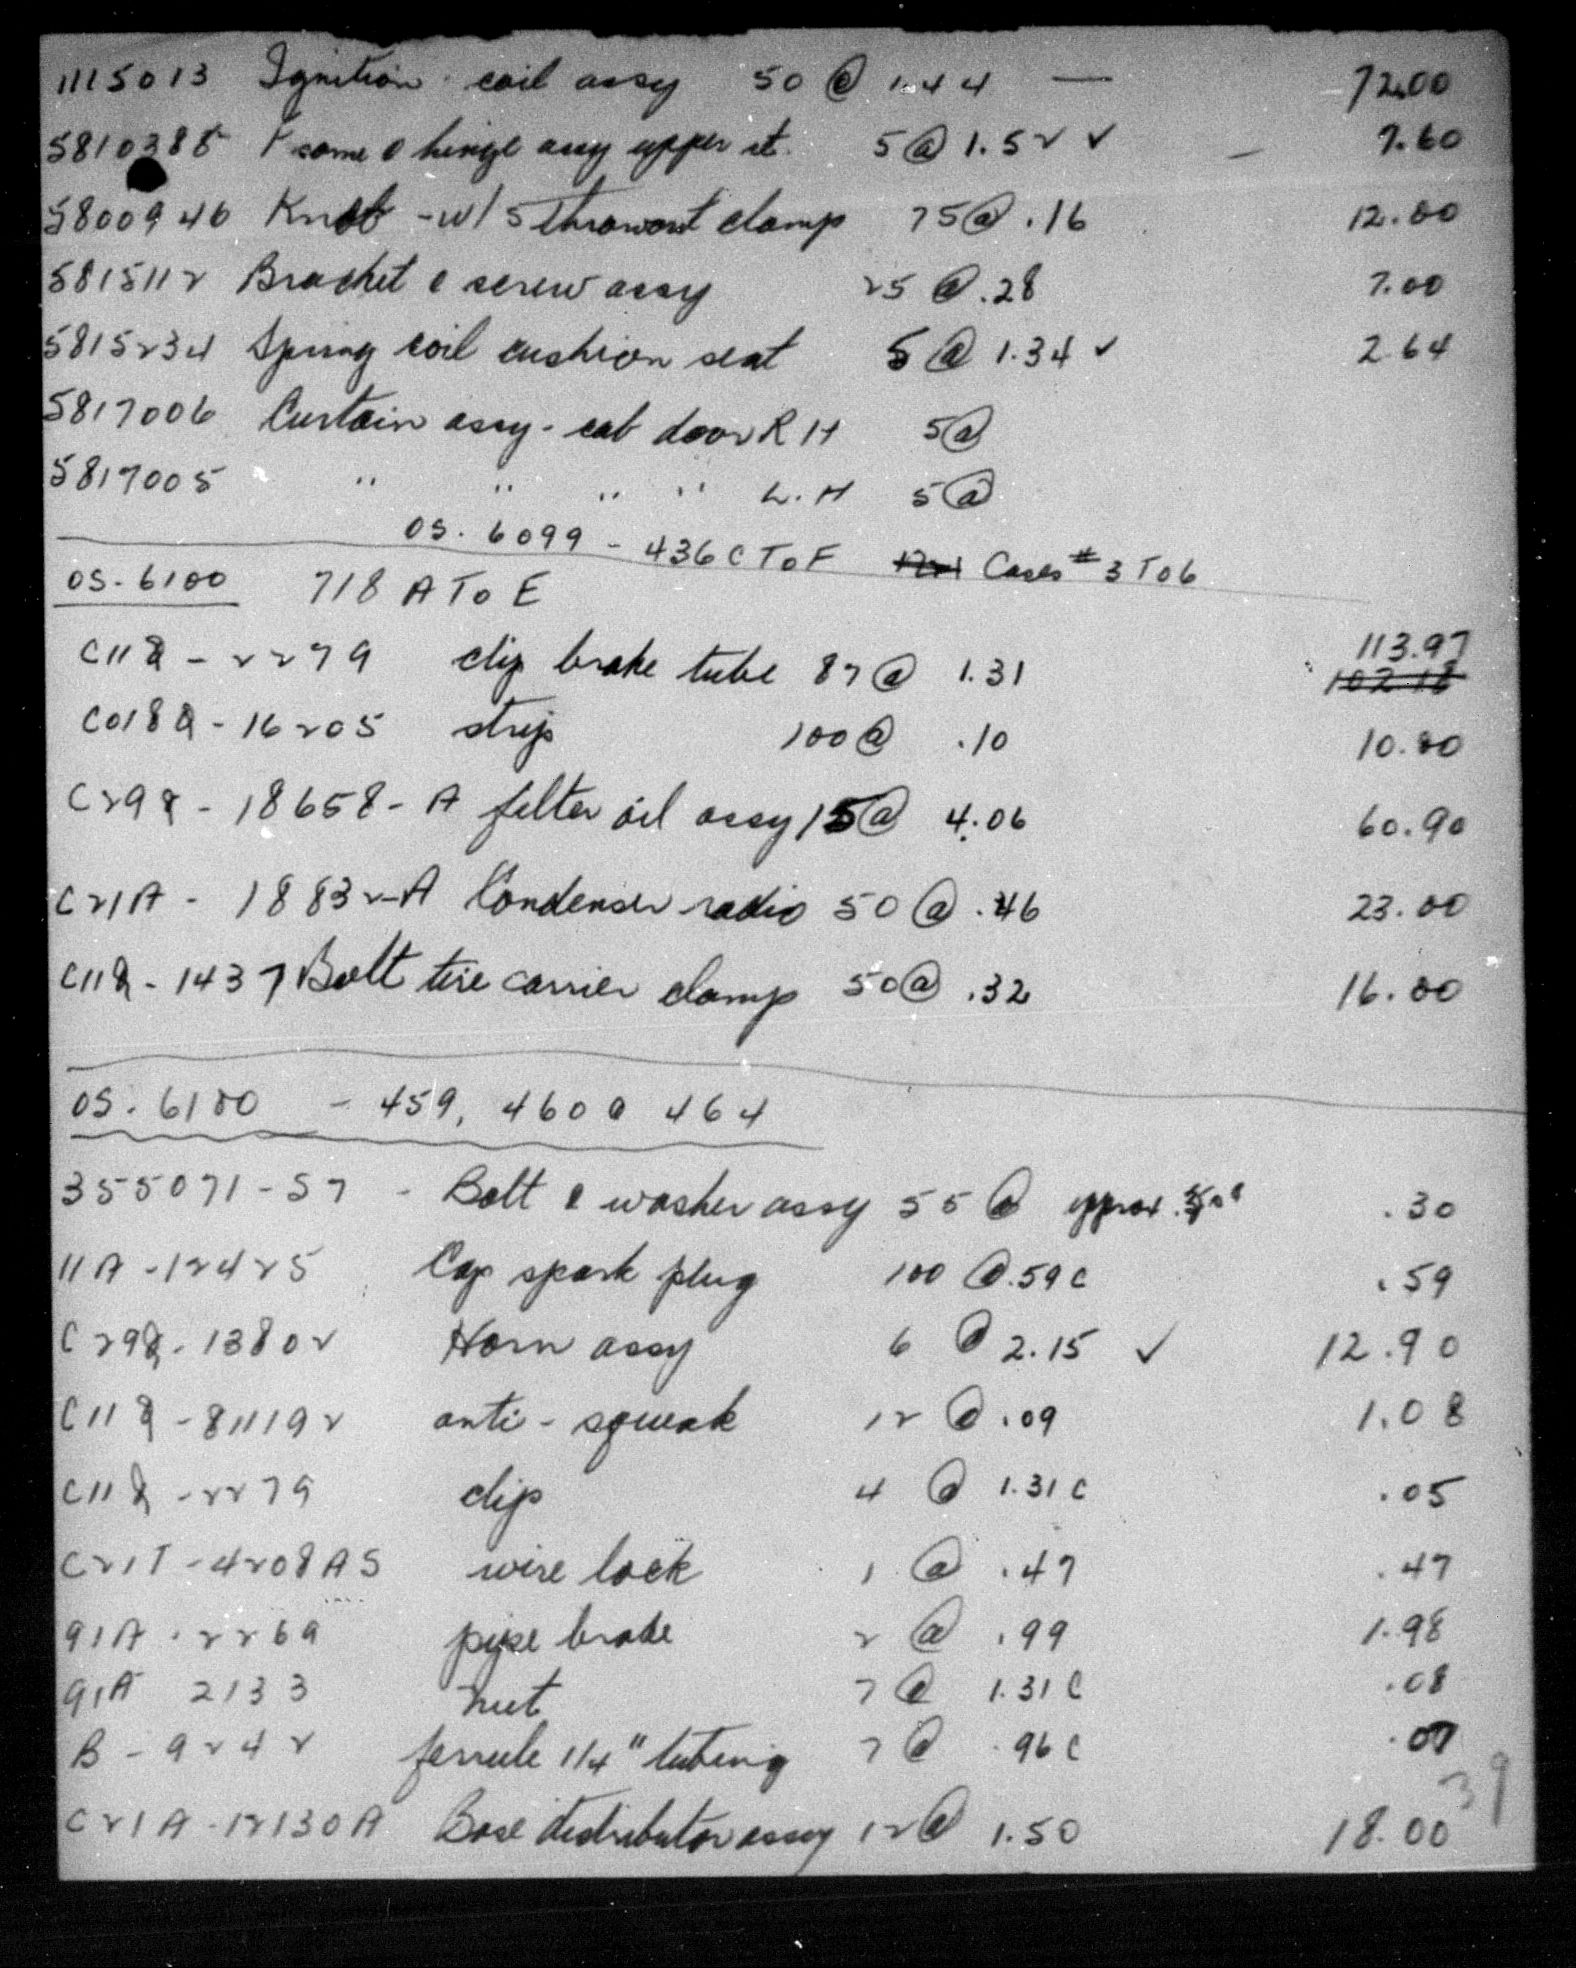 1115013 Ignition coil assy 50 @ 1.44 — 72.00
5810388 Frame & hinge assy upper st. 5 @ 1.52 ✓ — 7.60
5800946 Knob - w/s throwout clamp 75 @ .16 12.00
5815112 Bracket & screw assy 25 @ .28 7.00
5815234 Spring coil cushion seat 5 @ 1.34 ✓ 2.64
5817006 Curtain assy - cab door R H 5 @
5817005 " " " " L.H 5 @
OS. 6099 - 436 C To F Cases # 3 To 6
OS-6100 718 A To E
C118 - 2279 clip brake tube 87 @ 1.31 113.97
102.18
C018Q - 16205 strip 100 @ .10 10.00
C298 - 18658 - A filter oil assy 15 @ 4.06 60.90
C21A - 18832-A Condenser radio 50 @ .46 23.00
C11Q - 1437 Bolt tire carrier clamp 50 @ .32 16.00
OS. 6100 - 459, 460 & 464
355071 - S7 - Bolt & washer assy 55 @ approx .30
11A - 12425 Cap spark plug 100 @ .59 C .59
C29Q - 13802 Horn assy 6 @ 2.15 ✓ 12.90
C11Q - 811192 anti - squeak 12 @ .09 1.08
C11Q - 2279 clip 4 @ 1.31 C .05
C21T - 4208 AS wire lock 1 @ .47 .47
91A - 2269 pipe brake 2 @ .99 1.98
91A 2133 nut 7 @ 1.31 C .08
B - 9242 ferrule 1/4" tubing 7 @ .96 C .07
C21A - 12130A Base distributor assy 12 @ 1.50 18.00
39